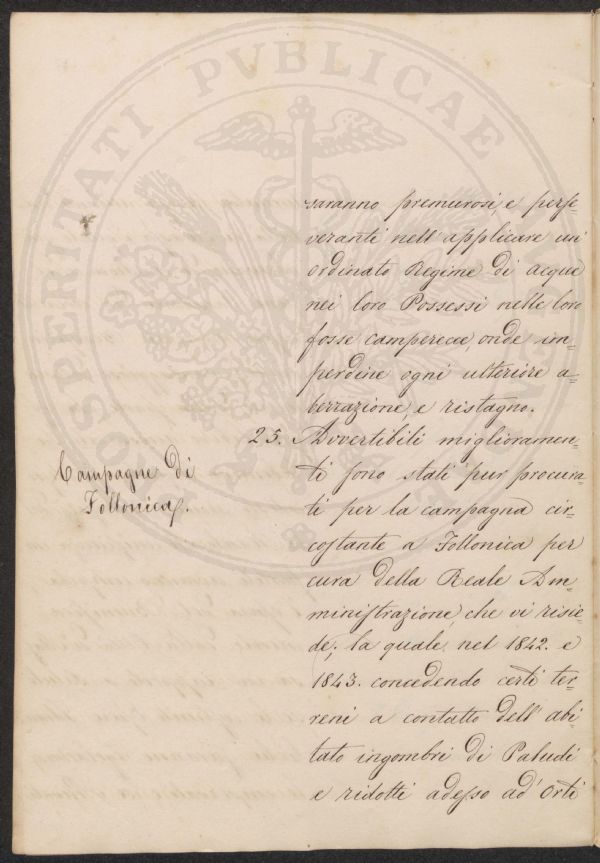 PROSPERITATI PVBLICAE
saranno premurosi, e perse-
veranti nell'applicare un'
ordinato Regime di acque
nei loro Possessi nelle loro
fosse camperecce, onde im-
perdine ogni ulteriore a-
berrazione, e ristagno.
25. Avvertibili miglioramen-
ti sono stati pur procura-
ti per la campagna cir-
costante a Follonica per
cura della Reale Am-
ministrazione, che vi risie-
de; la quale nel 1842. e
1843. concedendo certi ter-
reni a contatto dell'abi
tato ingombri di Paludi
e ridotti adesso ad'Orti
Campagne di
Follonica.